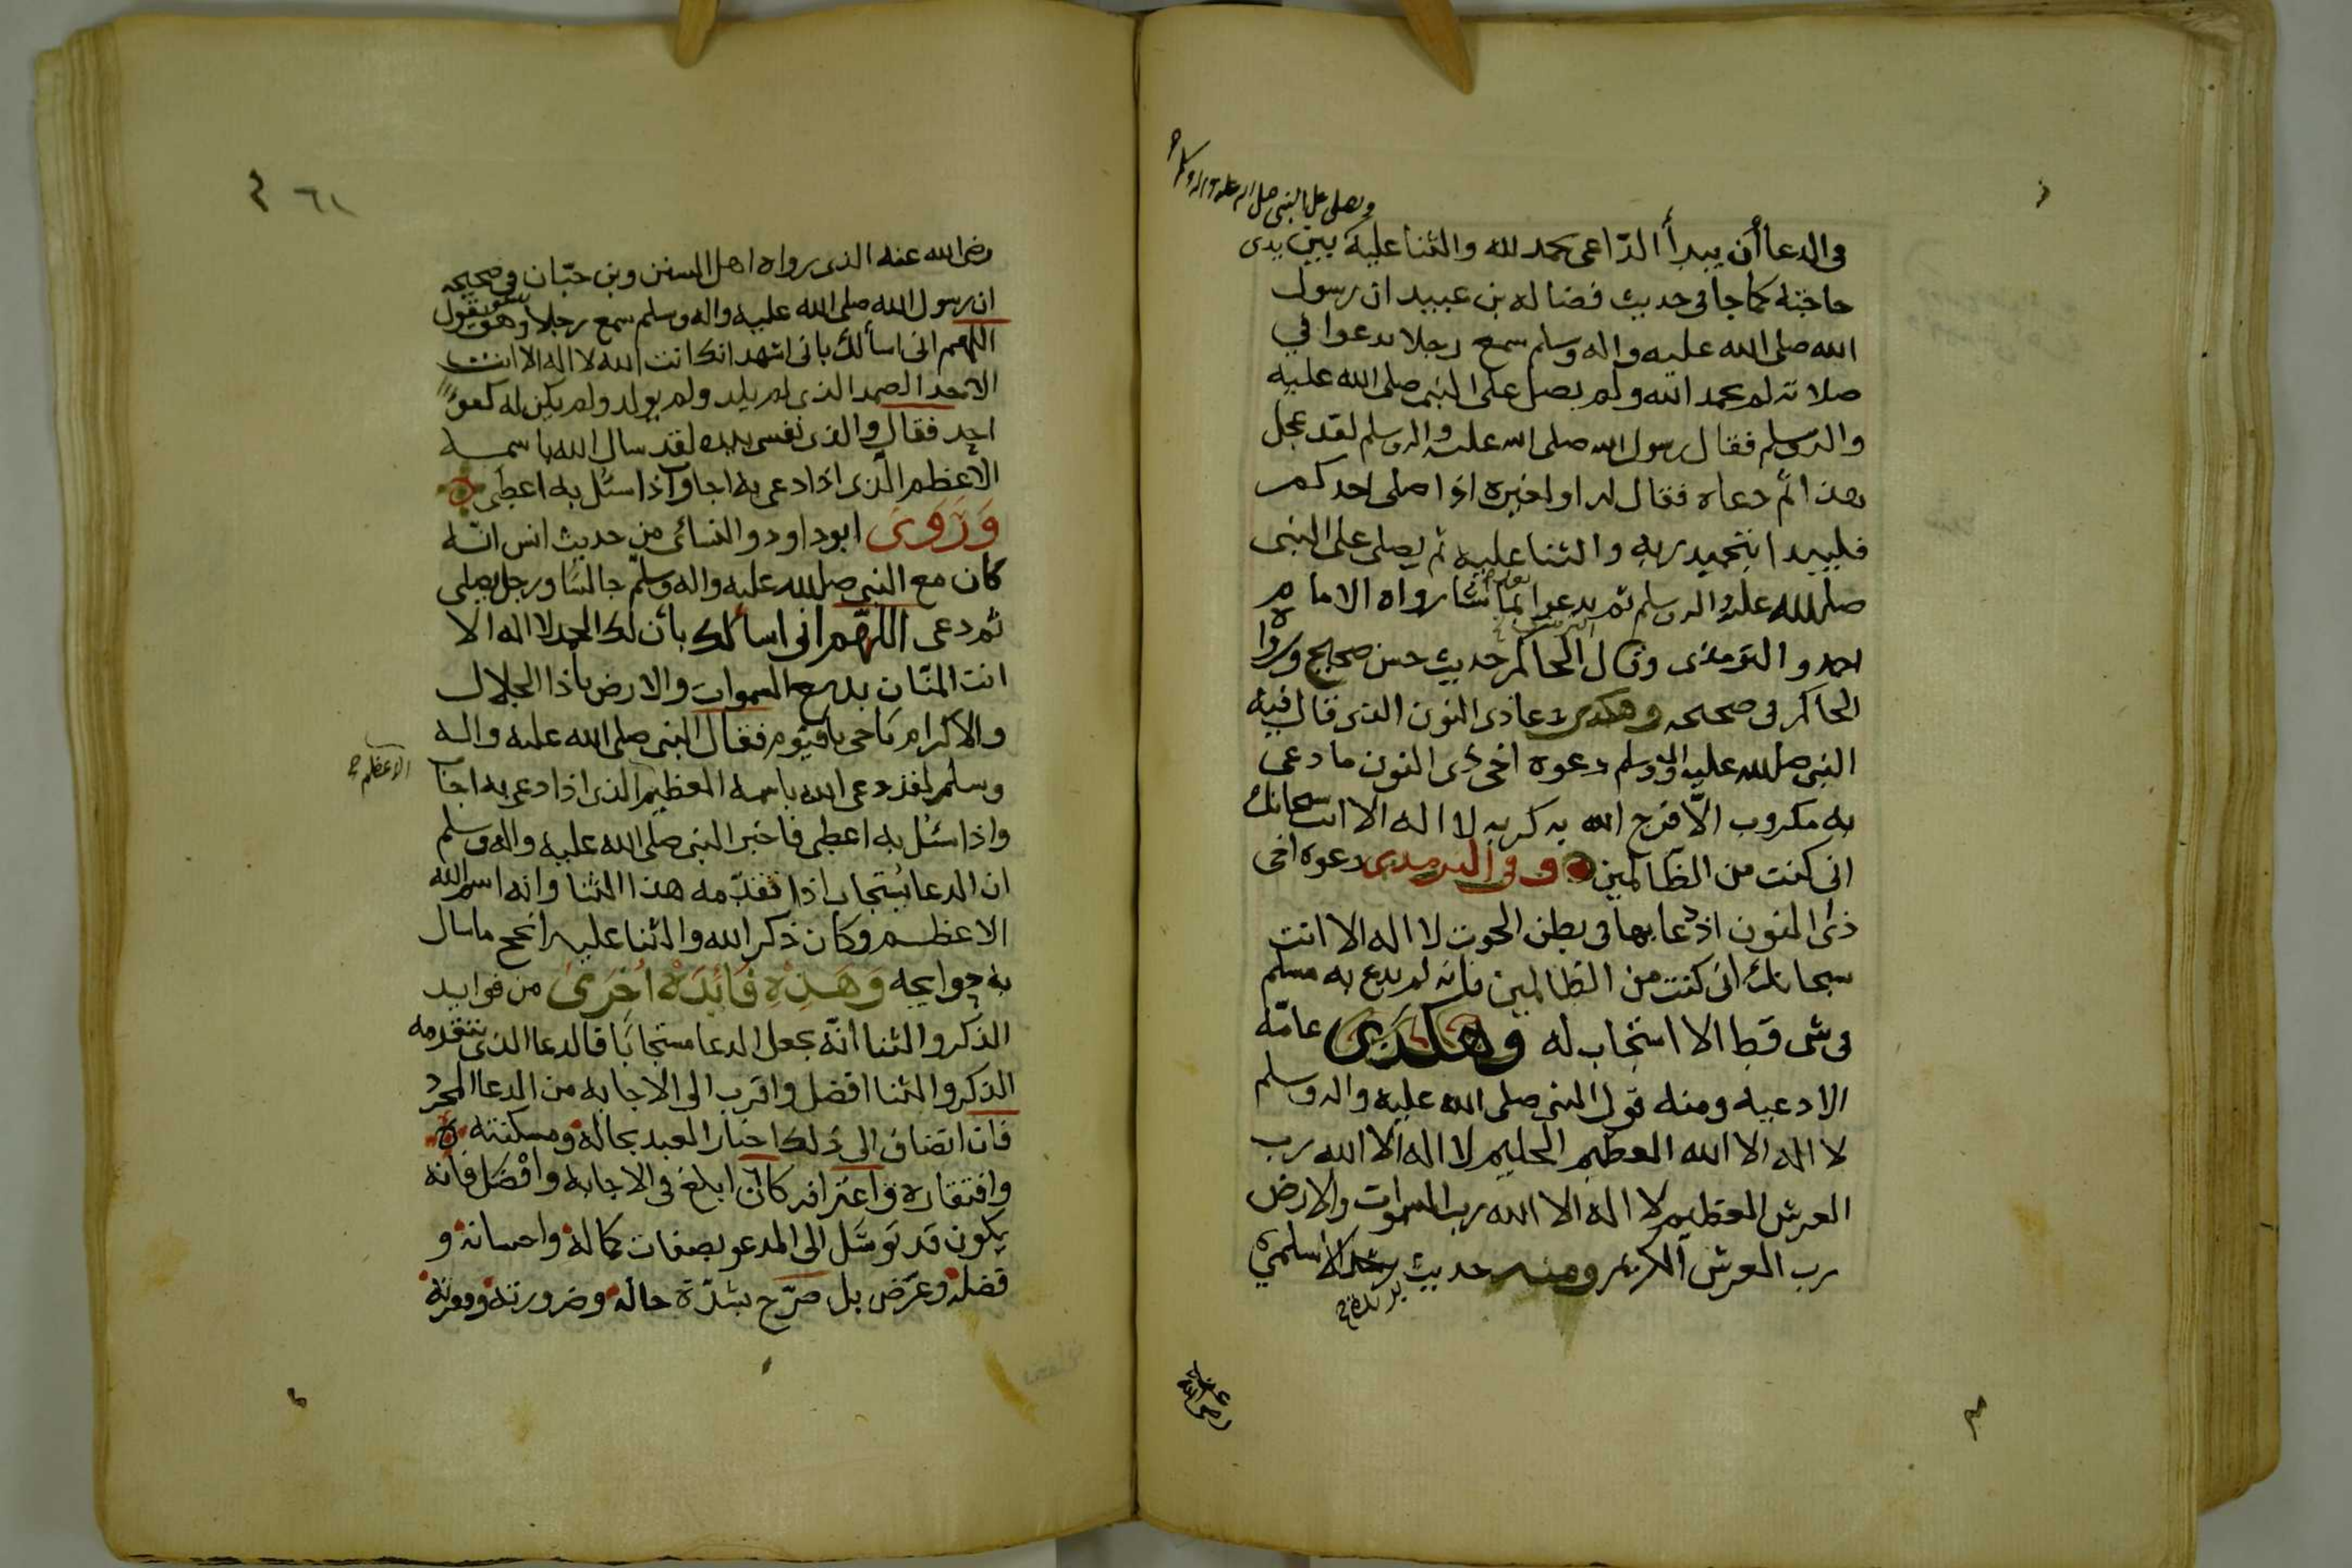 ويصلى على النبي صلى الله عليه واله وسلم
في الدعا أن يبدأ الدّاعى بحمد لله والثنا عليه بين يدى
حاجته كما جا في حديث فضاله بن عبيد ان رسول
الله صلى الله عليه واله وسلم سمع رجلا يدعوا في
صلاته لم يحمد الله ولم يصل على النبي صلى الله عليه
واله وسلم فقال رسول الله صلى الله عليه واله وسلم لقد عجل
هذا ثم دعاه فقال له او لغيره اذا صلى احدكم
فليبدا بتحميد ربه والثنا عليه ثم يصلى على النبي
صلى الله عليه واله وسلم ثم يدعوا بما شا رواه الامام
احمد والترمذى وقال الحاكم حديث حسن صحيح ورواه
الحاكم في صحيحه وهكذى دعا ذى النون الذى قال فيه
النبي صلى الله عليه واله وسلم دعوه اخى ذى النون ما دعى
به مكروب الّا فرج الله به كربه لا اله الا انت سبحانك
انى كنت من الظالمين وفى الترمذى دعوه اخى
ذى النون اذ دعا بها في بطن الحوت لا اله الا انت
سبحانك انى كنت من الظالمين فانه لم يدع به مسلم
في شى قط الا استجاب له وهكذى عامّه
الادعيه ومنه قول النبي صلى الله عليه واله وسلم
لا اله الا الله العظيم الحليم لا اله الا الله رب
العرش العظيم لا اله الا الله رب السموات والارض
رب العرش الكريم ومنه حديث الاسلمي
بريدة
رضى الله عنه
٦١
رضى الله عنه الذى رواه اهل السنن وبن حبّان في صحيحه
ان رسول الله صلى الله عليه واله وسلم سمع رجلا وهو يقول
اللهم انى اسألك بانى اشهد انك انت الله لا اله الا انت
الاحد الصمد الذى لم يلد ولم يولد ولم يكن له كفوًا
احد فقال والذى نفسى بيده لقد سال الله باسمه
الاعظم الّذى اذا دعى به اجاب واذا سئل به اعطى
وَرَوَى ابو داود والنسائى من حديث انس انّه
كان مع النبي صلى الله عليه واله وسلم جالسًا ورجل يصلى
ثم دعى اللهم انى اسألك بأن لك الحمد لا اله الا
انت المنّان بديع السموات والارض ياذا الجلال
والاكرام ياحى ياقيّوم فقال النبي صلى الله عليه واله
وسلم لقد دعى الله باسمه العظيم الذى اذا دعى به اجاب
الاعظم
واذا سئل به اعطى فاخبر النبي صلى الله عليه واله وسلم
ان الدعا يُستجاب اذا تقدّمه هذا الثنا وانه اسم الله
الاعظم وكان ذكر الله والثنا عليه انجح ما سال
به حوايجه وَهَذِهِ فَائِدَهْ اُخْرَى من فوايد
الذكر والثنا انّه يجعل الدعا مستجابًا فالدعا الذى تتقدمه
الذكر والثنا افضل واقرب الى الاجابه من الدعا المجرّد
فان انضاف الى ذلك اخبار العبد بحاله ومسكنته
وافتقاره واعترافه كان ابلغ في الاجابه وافْضَل فانه
يكون قد توسّل الى المدعو بصفات كماله واحسانه و
فضله وعرّض بل صرّح بشدّة حاله وضرورته